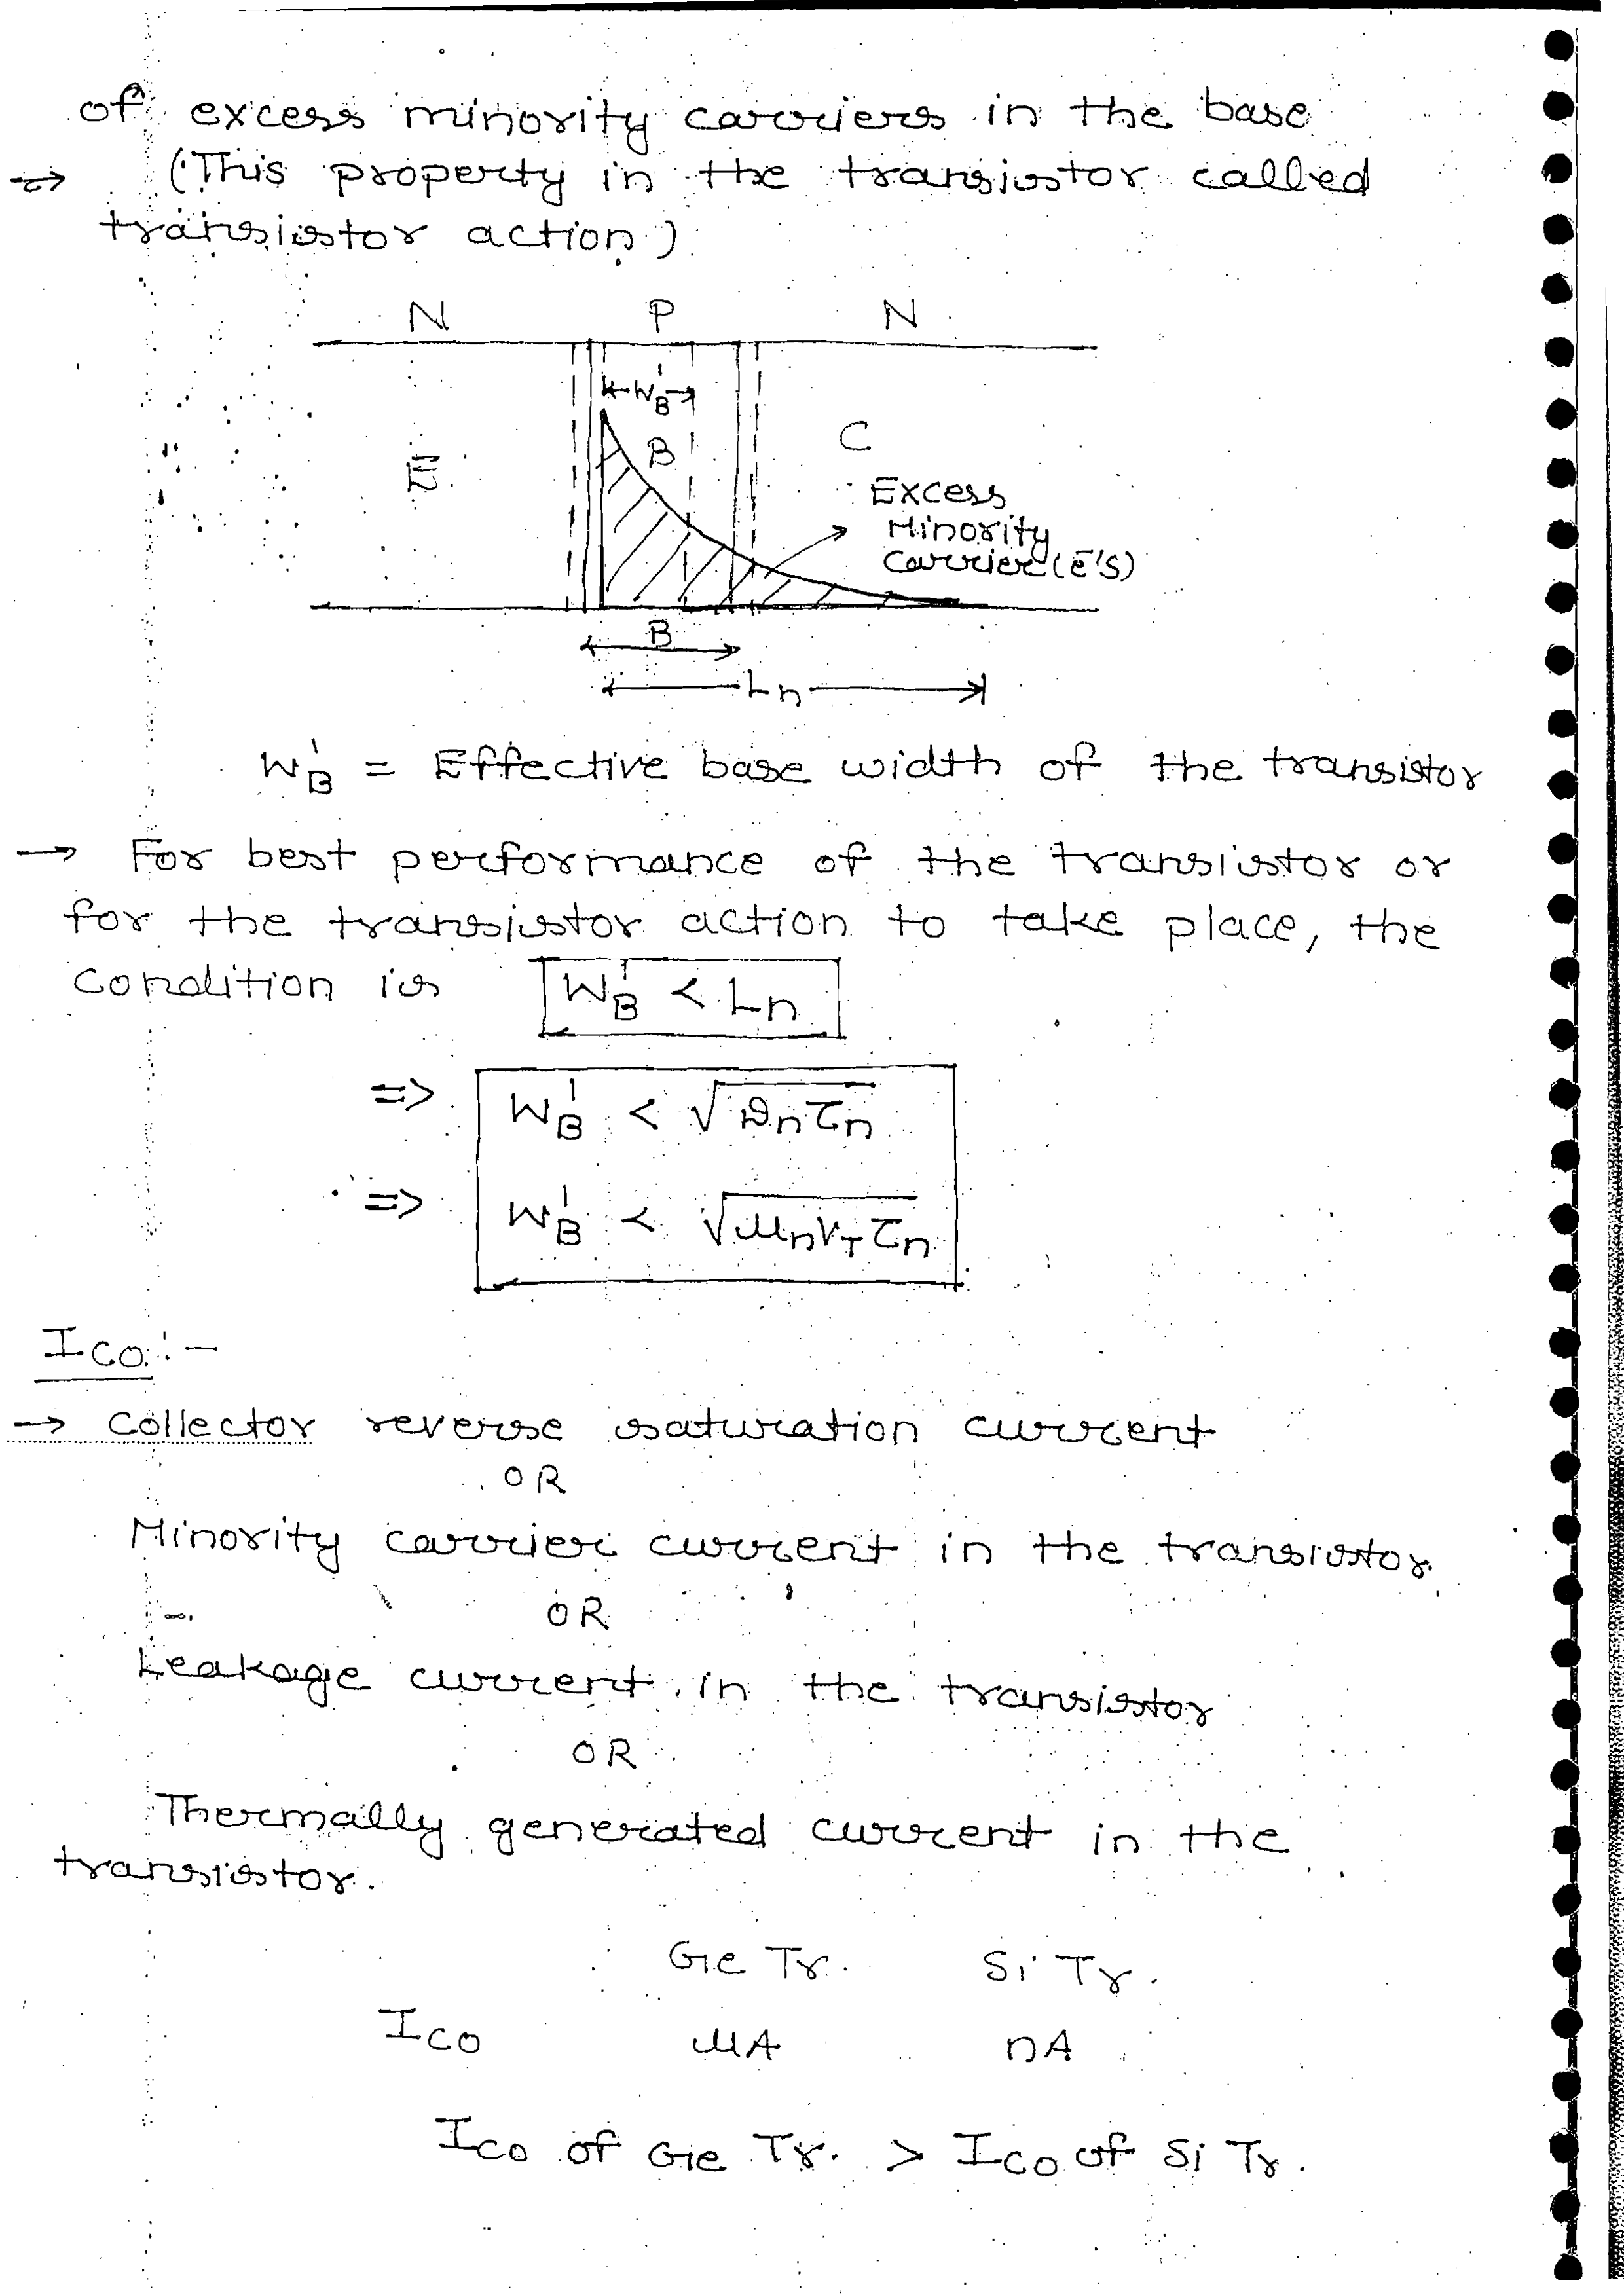 of excess minority carriers in the base
⇒ (This property in the transistor called
transistor action)
N P N
W'B
B
E
C
Excess
Minority
Carrier (ē's)
B
Ln
W'B = Effective base width of the transistor
→ For best performance of the transistor or
for the transistor action to take place, the
condition is W'B < Ln
⇒ W'B < √Dnτn
⇒ W'B < √μnVTτn
ICO :-
→ Collector reverse saturation current
OR
Minority carrier current in the transistor.
OR
Leakage current in the transistor
OR
Thermally generated current in the
transistor.
Ge Tr. Si Tr.
ICO μA nA
ICO of Ge Tr. > ICO of Si Tr.